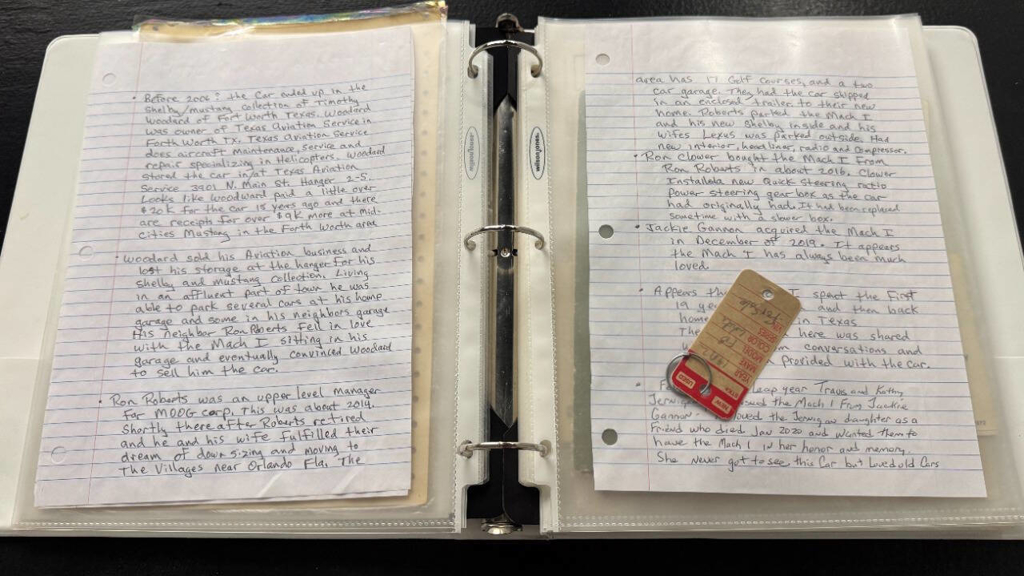 • Before 2006? the Car ended up in the
Shelby/mustang collection of Timothy
Woodard of Fort Worth Texas. Woodard
was owner of Texas Aviation Service in
Forth Worth Tx. Texas Aviation Service
does aircraft Maintenance, Service and
repair specializing in Helicopters. Woodard
stored the car in/at Texas Aviation
Service 3901 N. Main St. Hanger 2-S.
Looks like Woodward paid a little over
$20K for the car 15 years ago and there
are receipts for over $9K more at mid-
cities Mustang in the Forth Worth area
• Woodard sold his Aviation business and
lost his storage at the hanger for his
Shelby and mustang collection. Living
in an affluent part of town he was
able to park several cars at his home
garage and some in his neighbors garage
His neighbor Ron Roberts fell in love
with the Mach I sitting in his
garage and eventually convinced Woodard
to sell him the car.
• Ron Roberts was an upper level manager
for MOOG corp. This was about 2014.
Shortly there after Roberts retired
and he and his wife fulfilled their
dream of down sizing and moving to
The Villages near Orlando Fla. The
area has 17 Golf Courses, and a two
car garage. They had the car shipped
in an enclosed trailer to their new
home. Roberts parked the Mach I
and his new Shelby inside and his
wifes Lexus was parked outside. Had
new interior, headliner, radio and compressor.
• Ron Clower bought the Mach I from
Ron Roberts in about 2016. Clower
Installed a new Quick Steering ratio
Power steering gear box as the car
had originally had. It had been replaced
sometime with a slower box.
• Jackie Gannon acquired the Mach I
in December of 2019. It appears
the Mach I has always been much
loved.
• Appears th I spent the First
19 yea and then back
home in Texas
The here was shared
conversations and
Provided with the car.
• F Leap year Travis and Kathy
Jerni ed the Mach I From Jackie
Gannon oved the Jernigan daughter as a
Friend who died Jan 2020 and wanted them to
have the Mach I in her honor and memory.
She never got to see this Car but Loved old Cars